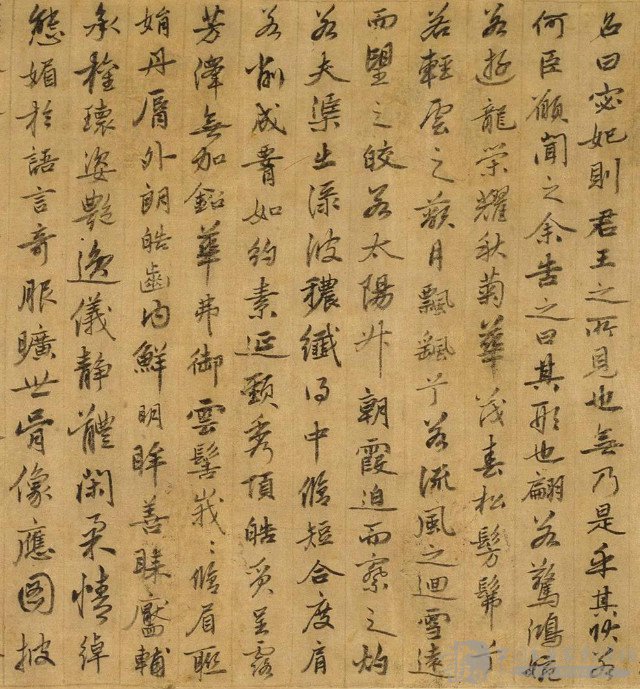 名曰宓妃則君王之所見也無乃是乎其狀若
何臣願聞之余告之曰其形也翩若驚鴻婉
若遊龍榮耀秋菊華茂春松髣髴兮
若輕雲之蔽月飄颻兮若流風之迴雪遠
而望之皎若太陽升朝霞迫而察之灼
若夫渠出淥波穠纖得中脩短合度肩
若削成腰如約素延頸秀項皓質呈露
芳澤無加鉛華弗御雲髻峩〻脩眉聯
娟丹脣外朗皓齒内鮮明眸善睞靨輔
承權瓌姿艷逸儀靜體閑柔情綽
態媚於語言奇服曠世骨像應圖披